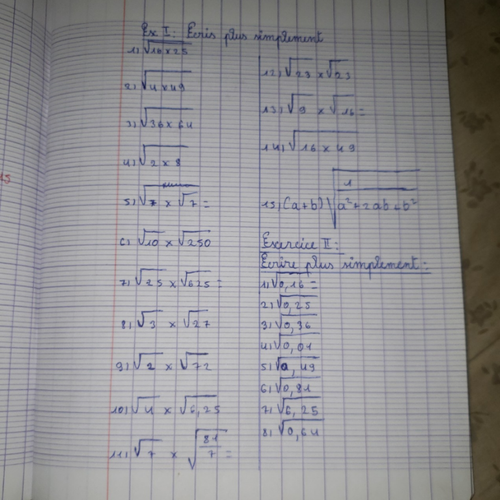 Ex I: Ecris plus simplement
1) √16×25
2) √4×49
3) √36×64
4) √2×8
5) √7 × √7 =
6) √10 × √250
7) √25 × √625 =
8) √3 × √27
9) √2 × √72
10) √4 × √6,25
11) √7 × √81/7 =
12) √23 × √23
13) √9 × √16 =
14) √16 × 49
15) (a+b) √1/a²+2ab+b²
Exercice II:
Ecrire plus simplement:
1) √0,16 =
2) √0,25
3) √0,36
4) √0,01
5) √0,49
6) √0,81
7) √6,25
8) √0,64